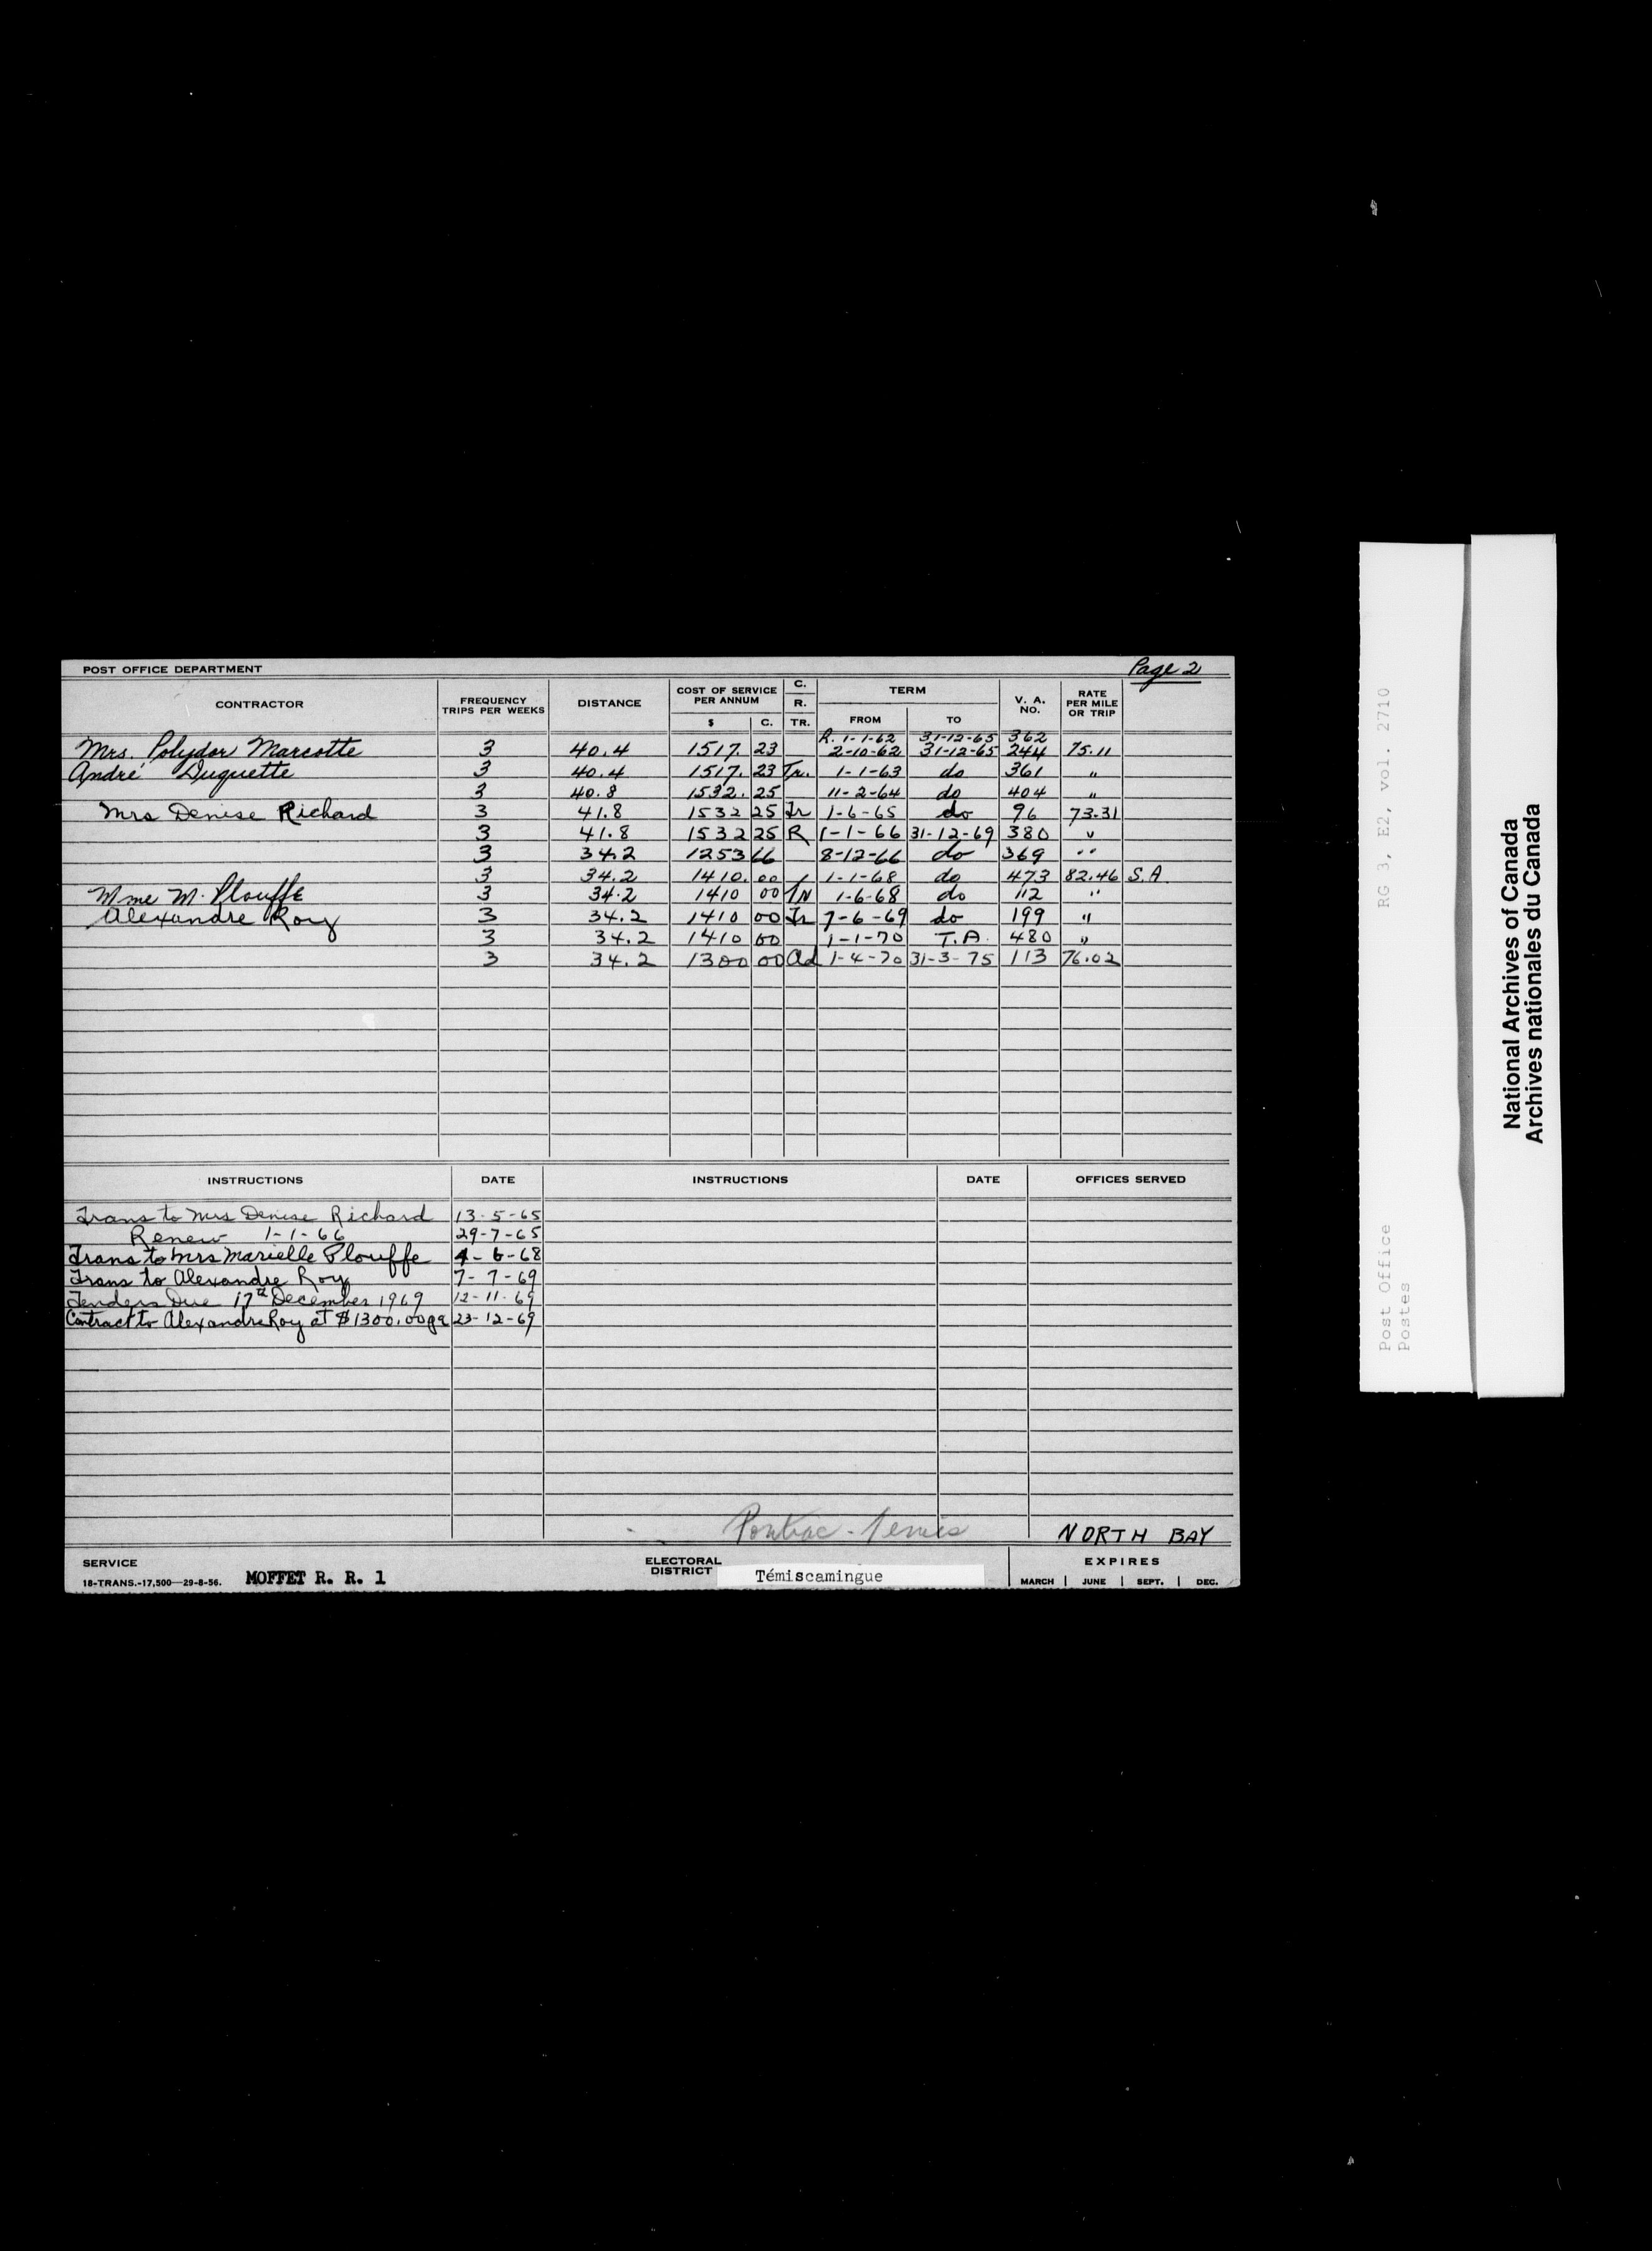 POST OFFICE DEPARTMENT
Page 2
CONTRACTOR FREQUENCY TRIPS PER WEEKS DISTANCE COST OF SERVICE PER ANNUM $ C. C. R. TR. TERM FROM TO V. A. NO. RATE PER MILE OR TRIP
R. 1-1-62 31-12-65 362
Mrs. Polydor Marcotte 3 40.4 1517. 23 2-10-62 31-12-65 244 75.11
André Duquette 3 40.4 1517. 23 Tr. 1-1-63 do 361 "
3 40.8 1532. 25 11-2-64 do 404 "
Mrs Denise Richard 3 41.8 1532 25 Tr 1-6-65 do 96 73.31
3 41.8 1532 25 R 1-1-66 31-12-69 380 "
3 34.2 1253 66 8-12-66 do 369 "
3 34.2 1410. 00 1-1-68 do 473 82.46 S.A.
Mme M. Plouffe 3 34.2 1410 00 1-6-68 do 112 "
Alexandre Roy 3 34.2 1410 00 Tr 7-6-69 do 199 "
3 34.2 1410 00 1-1-70 T.A. 480 "
3 34.2 1300 00 Ad 1-4-70 31-3-75 113 76.02
INSTRUCTIONS DATE INSTRUCTIONS DATE OFFICES SERVED
Trans to Mrs Denise Richard 13-5-65
Renew 1-1-66 29-7-65
Trans to Mrs Marielle Plouffe 4-6-68
Trans to Alexandre Roy 7-7-69
Tenders Due 17th December 1969 12-11-69
Contract to Alexandre Roy at $1300.00 23-12-69
Pontiac - Temis
NORTH BAY
SERVICE
18-TRANS.-17,500—29-8-56. MOFFET R. R. 1
ELECTORAL DISTRICT Témiscamingue
EXPIRES
MARCH JUNE SEPT. DEC.
RG 3, E2, vol. 2710
Post Office
Postes
National Archives of Canada
Archives nationales du Canada